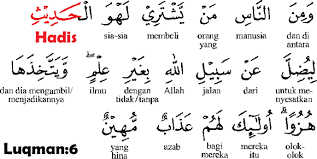 وَمِنَ النَّاسِ مَنْ يَّشْتَرِيْ لَهْوَ الْحَدِيْثِ
Hadis sia-sia membeli orang manusia dan di
yang antara
لِيُضِلَّ عَنْ سَبِيْلِ اللّٰهِ بِغَيْرِ عِلْمٍ ۖ وَّيَتَّخِذَهَا
dan dia mengambil/ ilmu dengan Allah jalan dari untuk me-
menjadikannya tidak/tanpa nyesatkan
هُزُوًا ۗ اُولٰۤئِكَ لَهُمْ عَذَابٌ مُّهِيْنٌ
yang azab bagi mereka olok-
Luqman:6 hina mereka itu olok